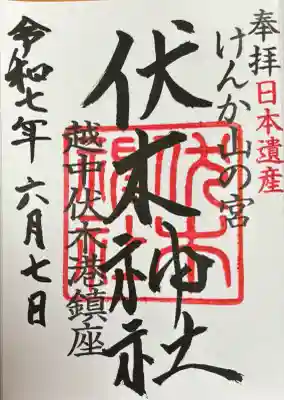 奉拝日本遺産
けんか山の宮
伏木神社
越中伏木港鎮座
令和七年六月七日